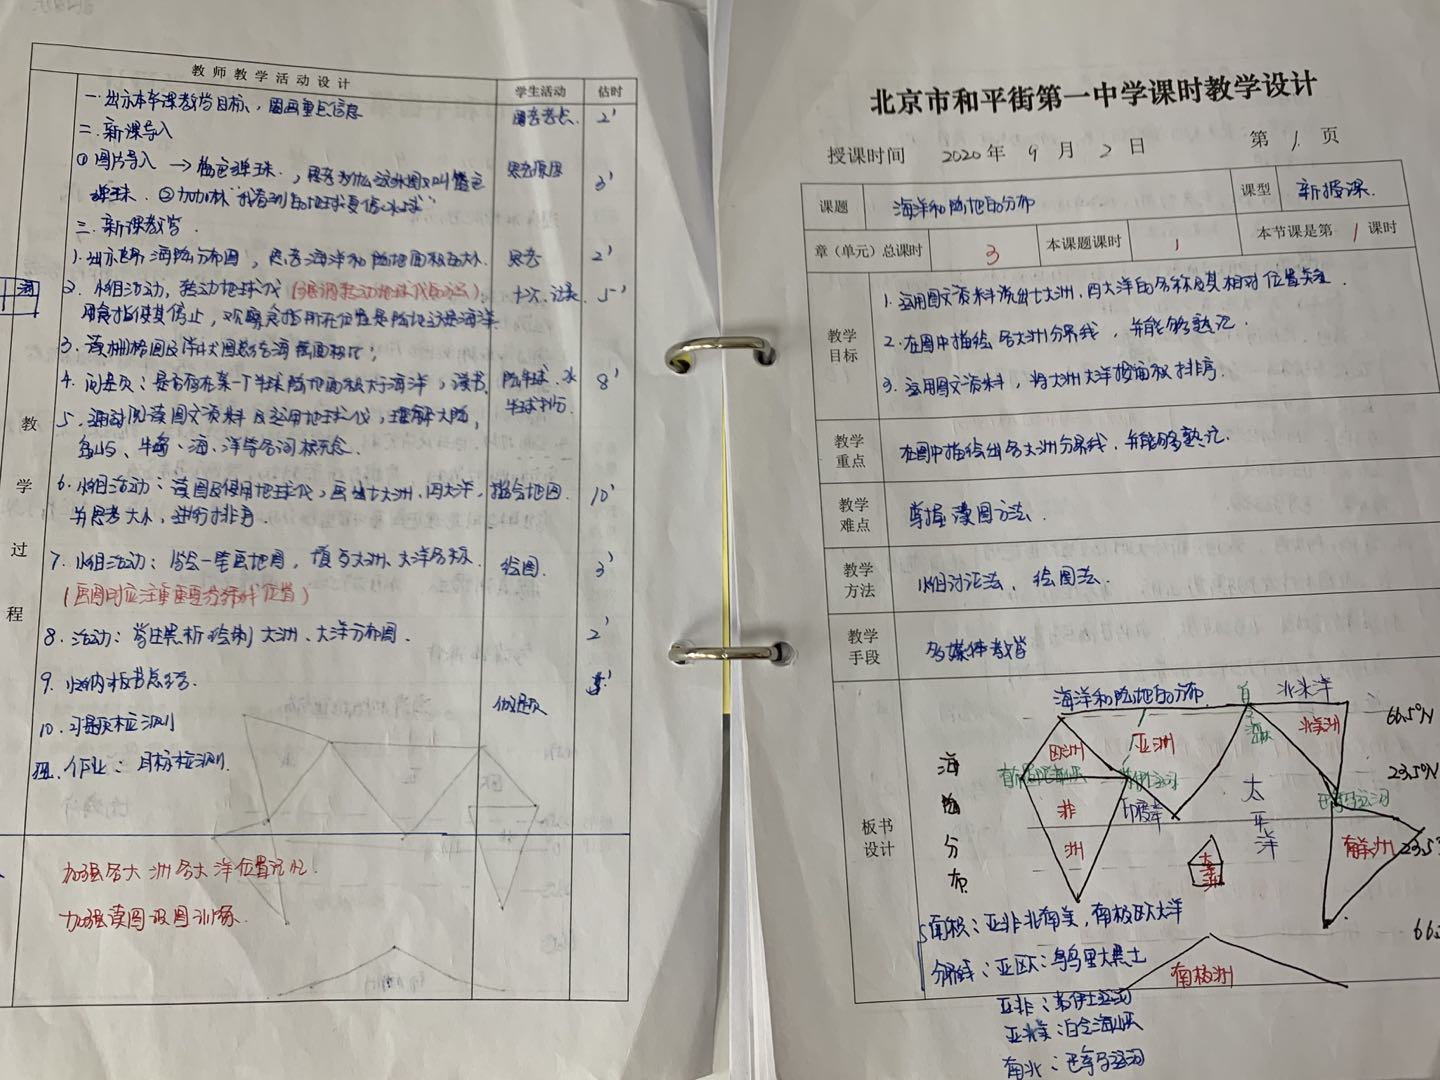 教师教学活动设计
学生活动
估时
一.出示本节课教学目标，圈画重点信息
圈考考点.
2'
二.新课导入
①图片导入 → 蓝色弹珠，思考为什么这张图又叫蓝色
思考原因
3'
弹珠. ②加加林"我看到的地球更像水球"
三.新课教学.
1.出示世界海陆分布图，思考海洋和陆地面积的大小.
思考
2'
2.小组活动，转动地球仪（强调转动地球仪的方法）
十次、记录
5'
用食指使其停止，观察食指所在位置是陆地还是海洋
3.读栅格图及饼状图总结海陆面积比；
4.问题：是否存在某一个半球陆地面积大于海洋，读书
陆半球、水
半球划分.
8'
5.通过阅读图文资料及运用地球仪，理解大陆，
岛屿、半岛、海、洋等各词概念.
6.小组活动：读图及使用地球仪，画出七大洲、四大洋，
描绘地图.
10'
并思考大小，进行排序.
7.小组活动：学绘一笔画地图，填写大洲、大洋名称.
绘图.
3'
（画图时应注重重要纬线位置）
8.活动：学生黑板绘制大洲、大洋分布图.
2'
9.归纳板书总结.
5'
10.习题检测
做题
四.作业：目标检测.
教
学
过
程
加强各大洲各大洋位置记忆.
加强读图识图训练.
北京市和平街第一中学课时教学设计
授课时间 2020年 9 月 2 日 第 1. 页
课题 海洋和陆地的分布 课型 新授课.
章（单元）总课时 3 本课题课时 1 本节课是第 1 课时
教学目标
1.运用图文资料说出七大洲、四大洋的名称及其相对位置关系.
2.在图中描绘各大洲分界线，并能够熟记.
3.运用图文资料，将大洲大洋按面积排序.
教学重点 在图中描绘出各大洲分界线，并能够熟记.
教学难点 掌握读图方法.
教学方法 小组讨论法、绘图法.
教学手段 多媒体教学
板书设计
海洋和陆地的分布
北冰洋
66.5°N
欧洲
亚洲
北美洲
23.5°N
苏伊士运河
巴拿马运河
非
洲
印度洋
太
平
洋
南美洲
23.5°
66.
海
陆
分
布
面积：亚非北南美，南极欧大洋
分界线：亚欧：乌乌里大黑土
南极洲
亚非：苏伊士运河
亚北美：白令海峡
南北：巴拿马运河